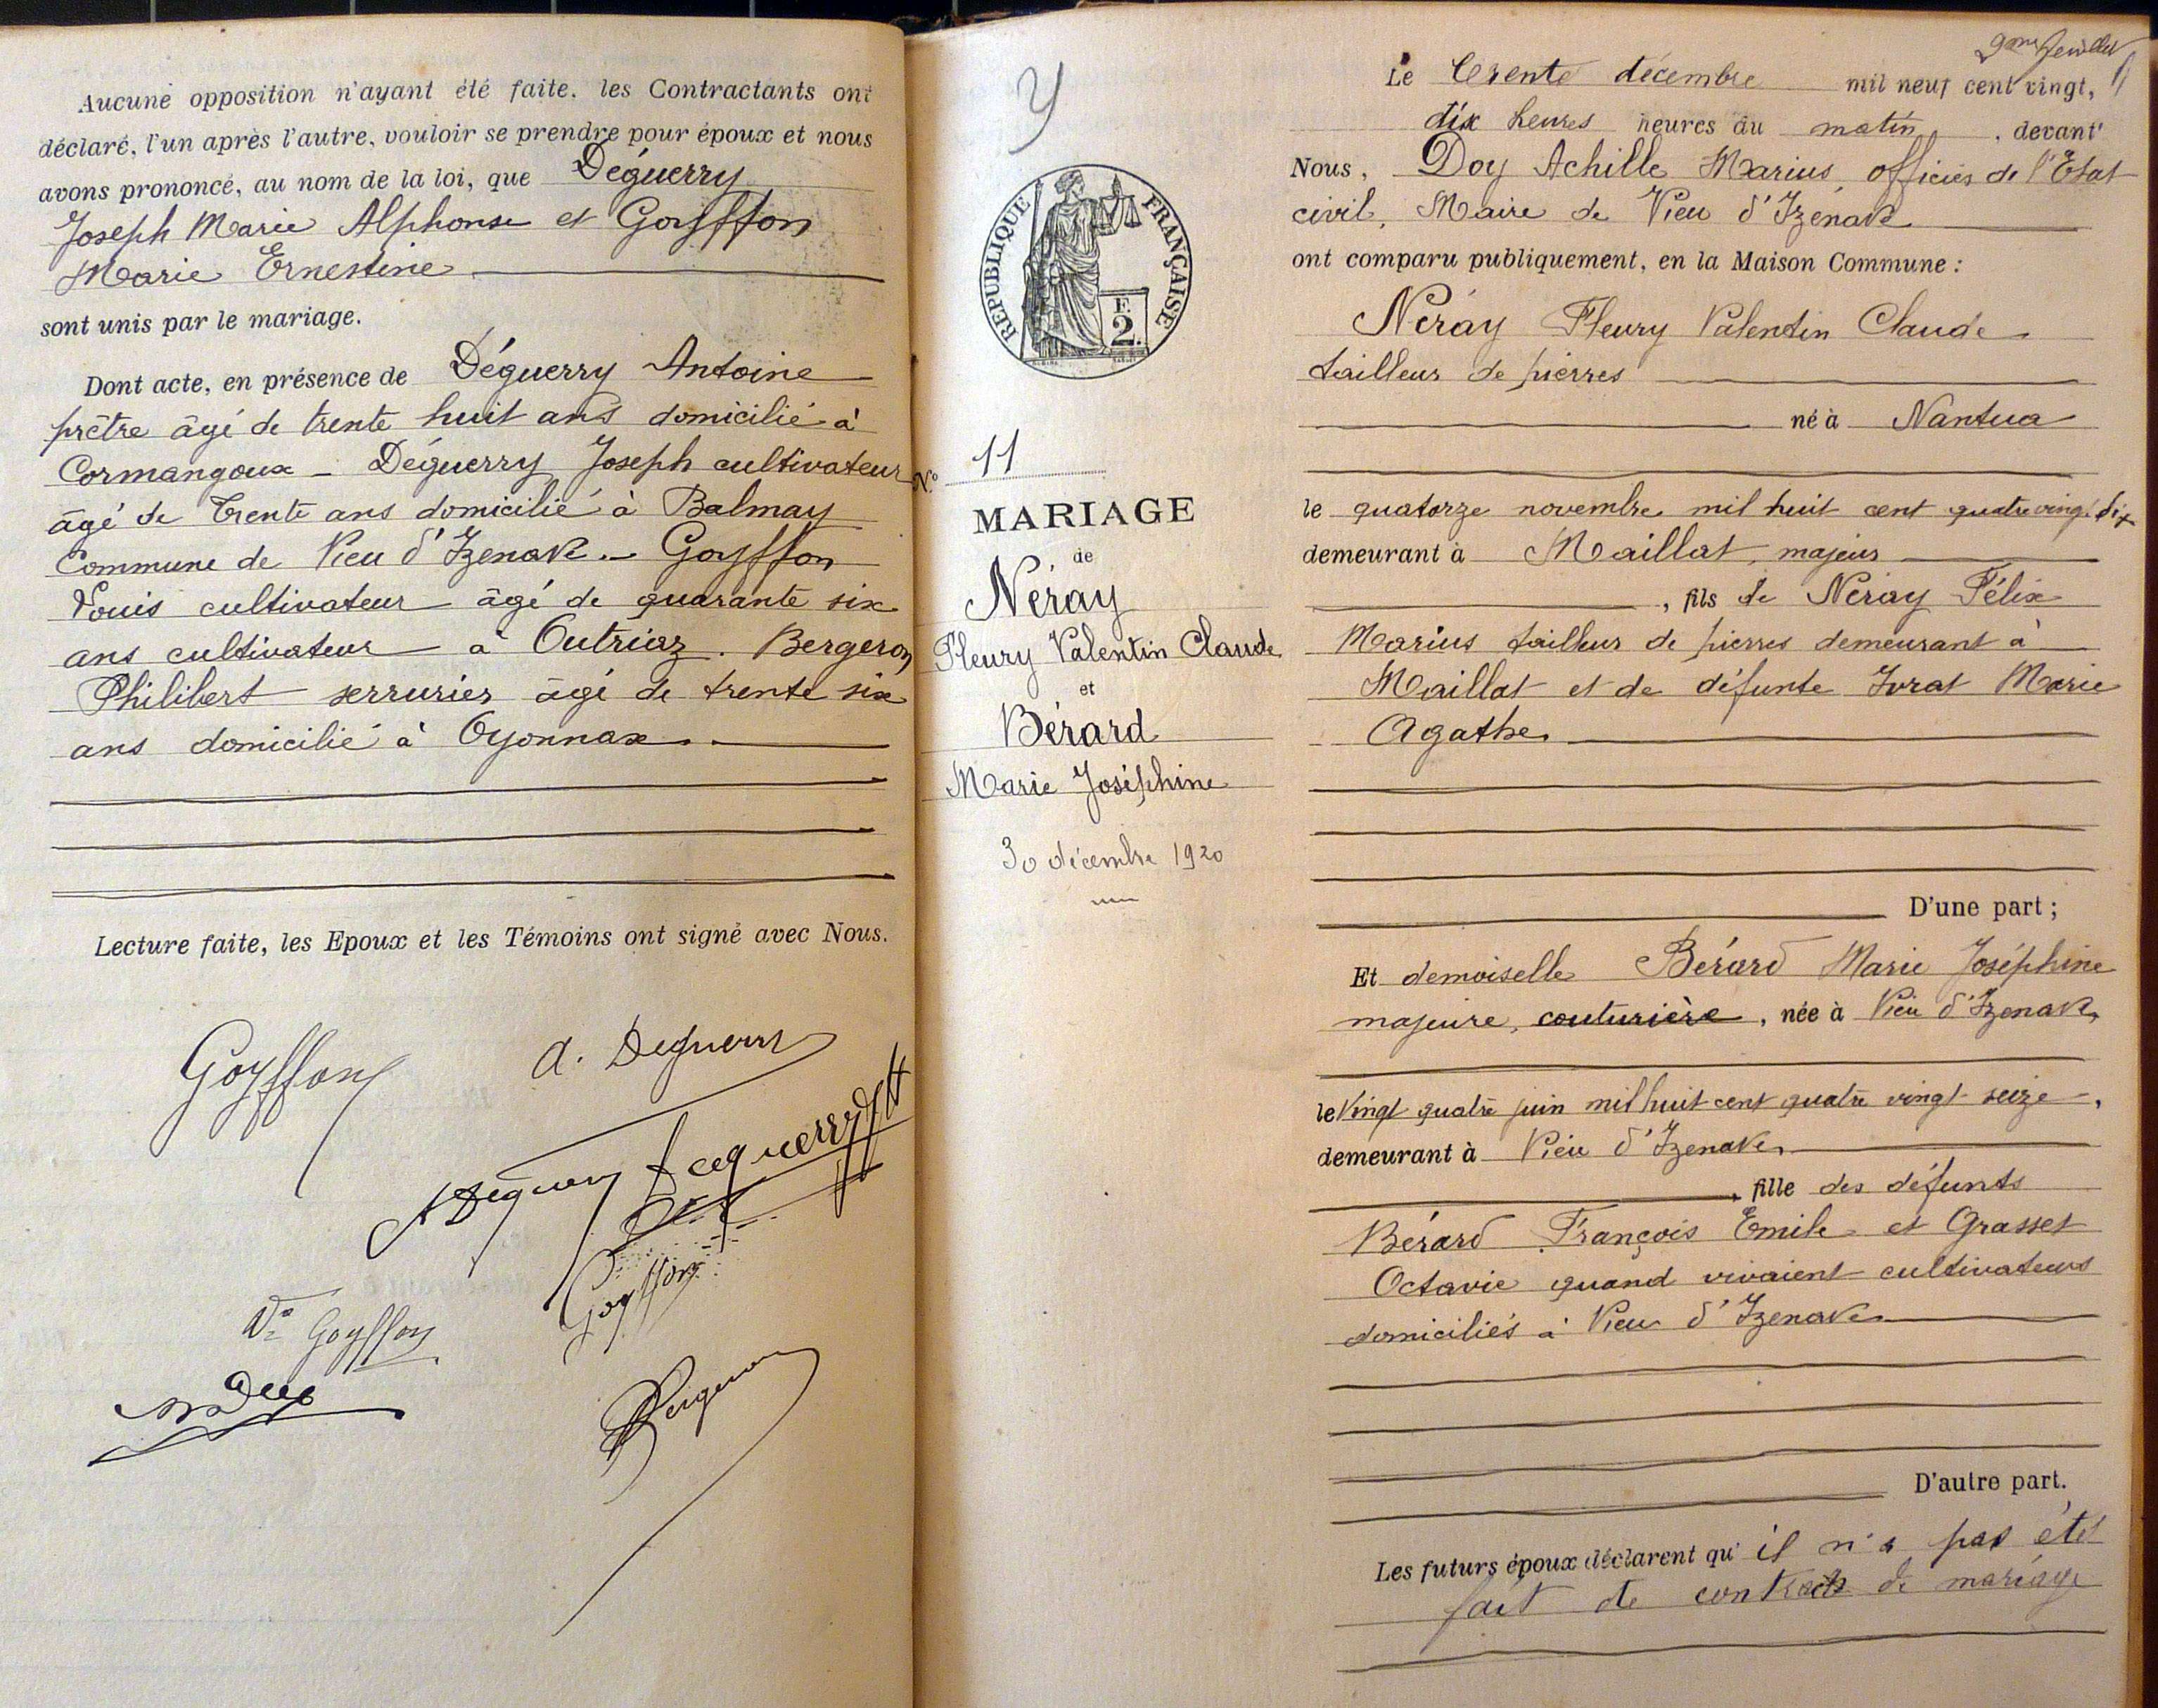 Aucune opposition n'ayant été faite, les Contractants ont
déclaré, l'un après l'autre, vouloir se prendre pour époux et nous
avons prononcé, au nom de la loi, que Déguerry
Joseph Marie Alphonse et Goyffon
Marie Ernestine
sont unis par le mariage.
Dont acte, en présence de Déguerry Antoine
prêtre âgé de trente huit ans domicilié à
Cormangoux - Déguerry Joseph cultivateur
âgé de trente ans domicilié à Balmay
Commune de Vieu d'Izenave - Goyffon
Louis cultivateur âgé de quarante six
ans cultivateur à Outriaz. Bergeron
Philibert serrurier âgé de trente six
ans domicilié à Oyonnax.
Lecture faite, les Epoux et les Témoins ont signé avec Nous.
Goyffon
A. Deguerry
A Deguerry
J Deguerry
Goyffon
Goyffon
Bergeron
RÉPUBLIQUE FRANÇAISE
F.
2.
N° 11
MARIAGE
de
Néray
Fleury Valentin Claude
et
Bérard
Marie Joséphine
30 décembre 1920
9me feuillet
Le trente décembre mil neuf cent vingt,
dix heures heures du matin, devant
Nous, Doy Achille Marius, officier de l'Etat
civil, Maire de Vieu d'Izenave
ont comparu publiquement, en la Maison Commune :
Néray Fleury Valentin Claude
tailleur de pierres
né à Nantua
le quatorze novembre mil huit cent quatre vingt dix
demeurant à Maillat, majeur
, fils de Néray Félix
Marius tailleur de pierres demeurant à
Maillat et de défunte Jurat Marie
Agathe.
D'une part ;
Et demoiselle Bérard Marie Joséphine
majeure, couturière, née à Vieu d'Izenave,
le Vingt quatre juin mil huit cent quatre vingt seize,
demeurant à Vieu d'Izenave,
, fille des défunts
Bérard François Emile et Grasset
Octavie quand vivaient cultivateurs
domiciliés à Vieu d'Izenave
D'autre part.
Les futurs époux déclarent qu'il n'a pas été
fait de contrat de mariage